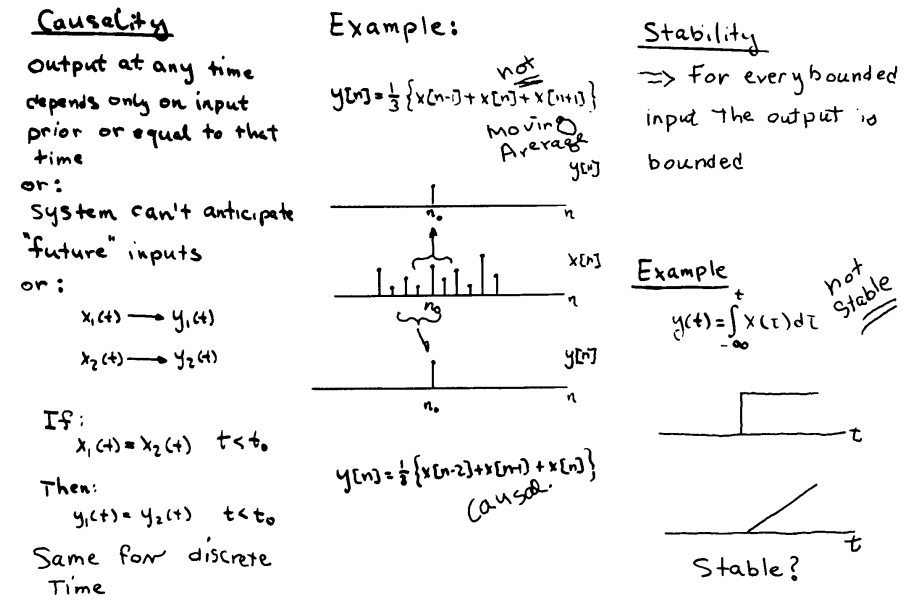 Causality
Output at any time
depends only on input
prior or equal to that
time
or:
System can't anticipate
"future" inputs
or:
x₁(t) → y₁(t)
x₂(t) → y₂(t)
If:
x₁(t) = x₂(t) t < t₀
Then:
y₁(t) = y₂(t) t < t₀
Same for discrete
Time
Example:
not
y[n] = 1/3 {x[n-1] + x[n] + x[n+1]}
Moving
Average
y[n]
n₀ n
x[n]
n₀ n
y[n]
n₀ n
y[n] = 1/3 {x[n-2] + x[n-1] + x[n]}
Causal.
Stability
⇒ For every bounded
input the output is
bounded
Example
not
Stable
y(t) = ∫_{-∞}^{t} x(τ) dτ
t
t
Stable?